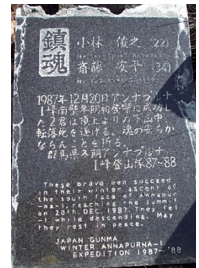 鎮魂
小林 俊之 (22)
斎藤 安平 (34)
1987年12月20日アンナプルナ
1峰南壁冬期初登攀に成功し
た2君は頂上よりの下山中
転落死を遂げる。魂の安らか
ならんことを祈る。
群馬県
1峰登山隊87~88
These brave men succeed
in their winter ascent of
the south face of Annapur
na-1, reaching the summit
on 20th. DEC. 1987. They fel
l while descending. May
they rest in peace.
JAPAN GUNMA
WINTER ANNAPURNA-1
EXPEDITION 1987~'88